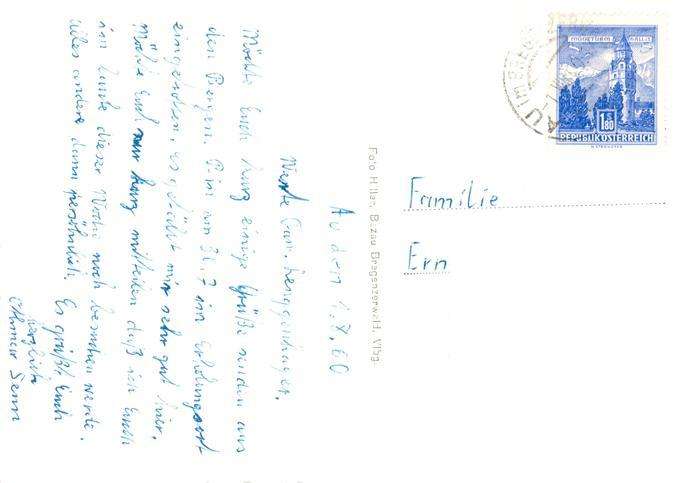 Au den 1.8.60
Werte Fam. Lenggenhager.
Möchte Euch kurz einige Grüße senden aus
den Bergen. Bin am 30.7 im Erholungsort
eingetroffen, es gefällt mir sehr gut hier.
Möchte Euch nur kurz mitteilen daß ich Euch
im Laufe dieser Woche noch besuchen werde.
Alles andere dann persönlich. Es grüßt Euch
herzlich
Othmar Senn
Foto Hiller, Bezau Bregenzerwald, Vlbg.
MÜNZTURM HALL I. T.
S
1.80
REPUBLIK ÖSTERREICH
AU IM BREGENZERWALD
Familie
Ern